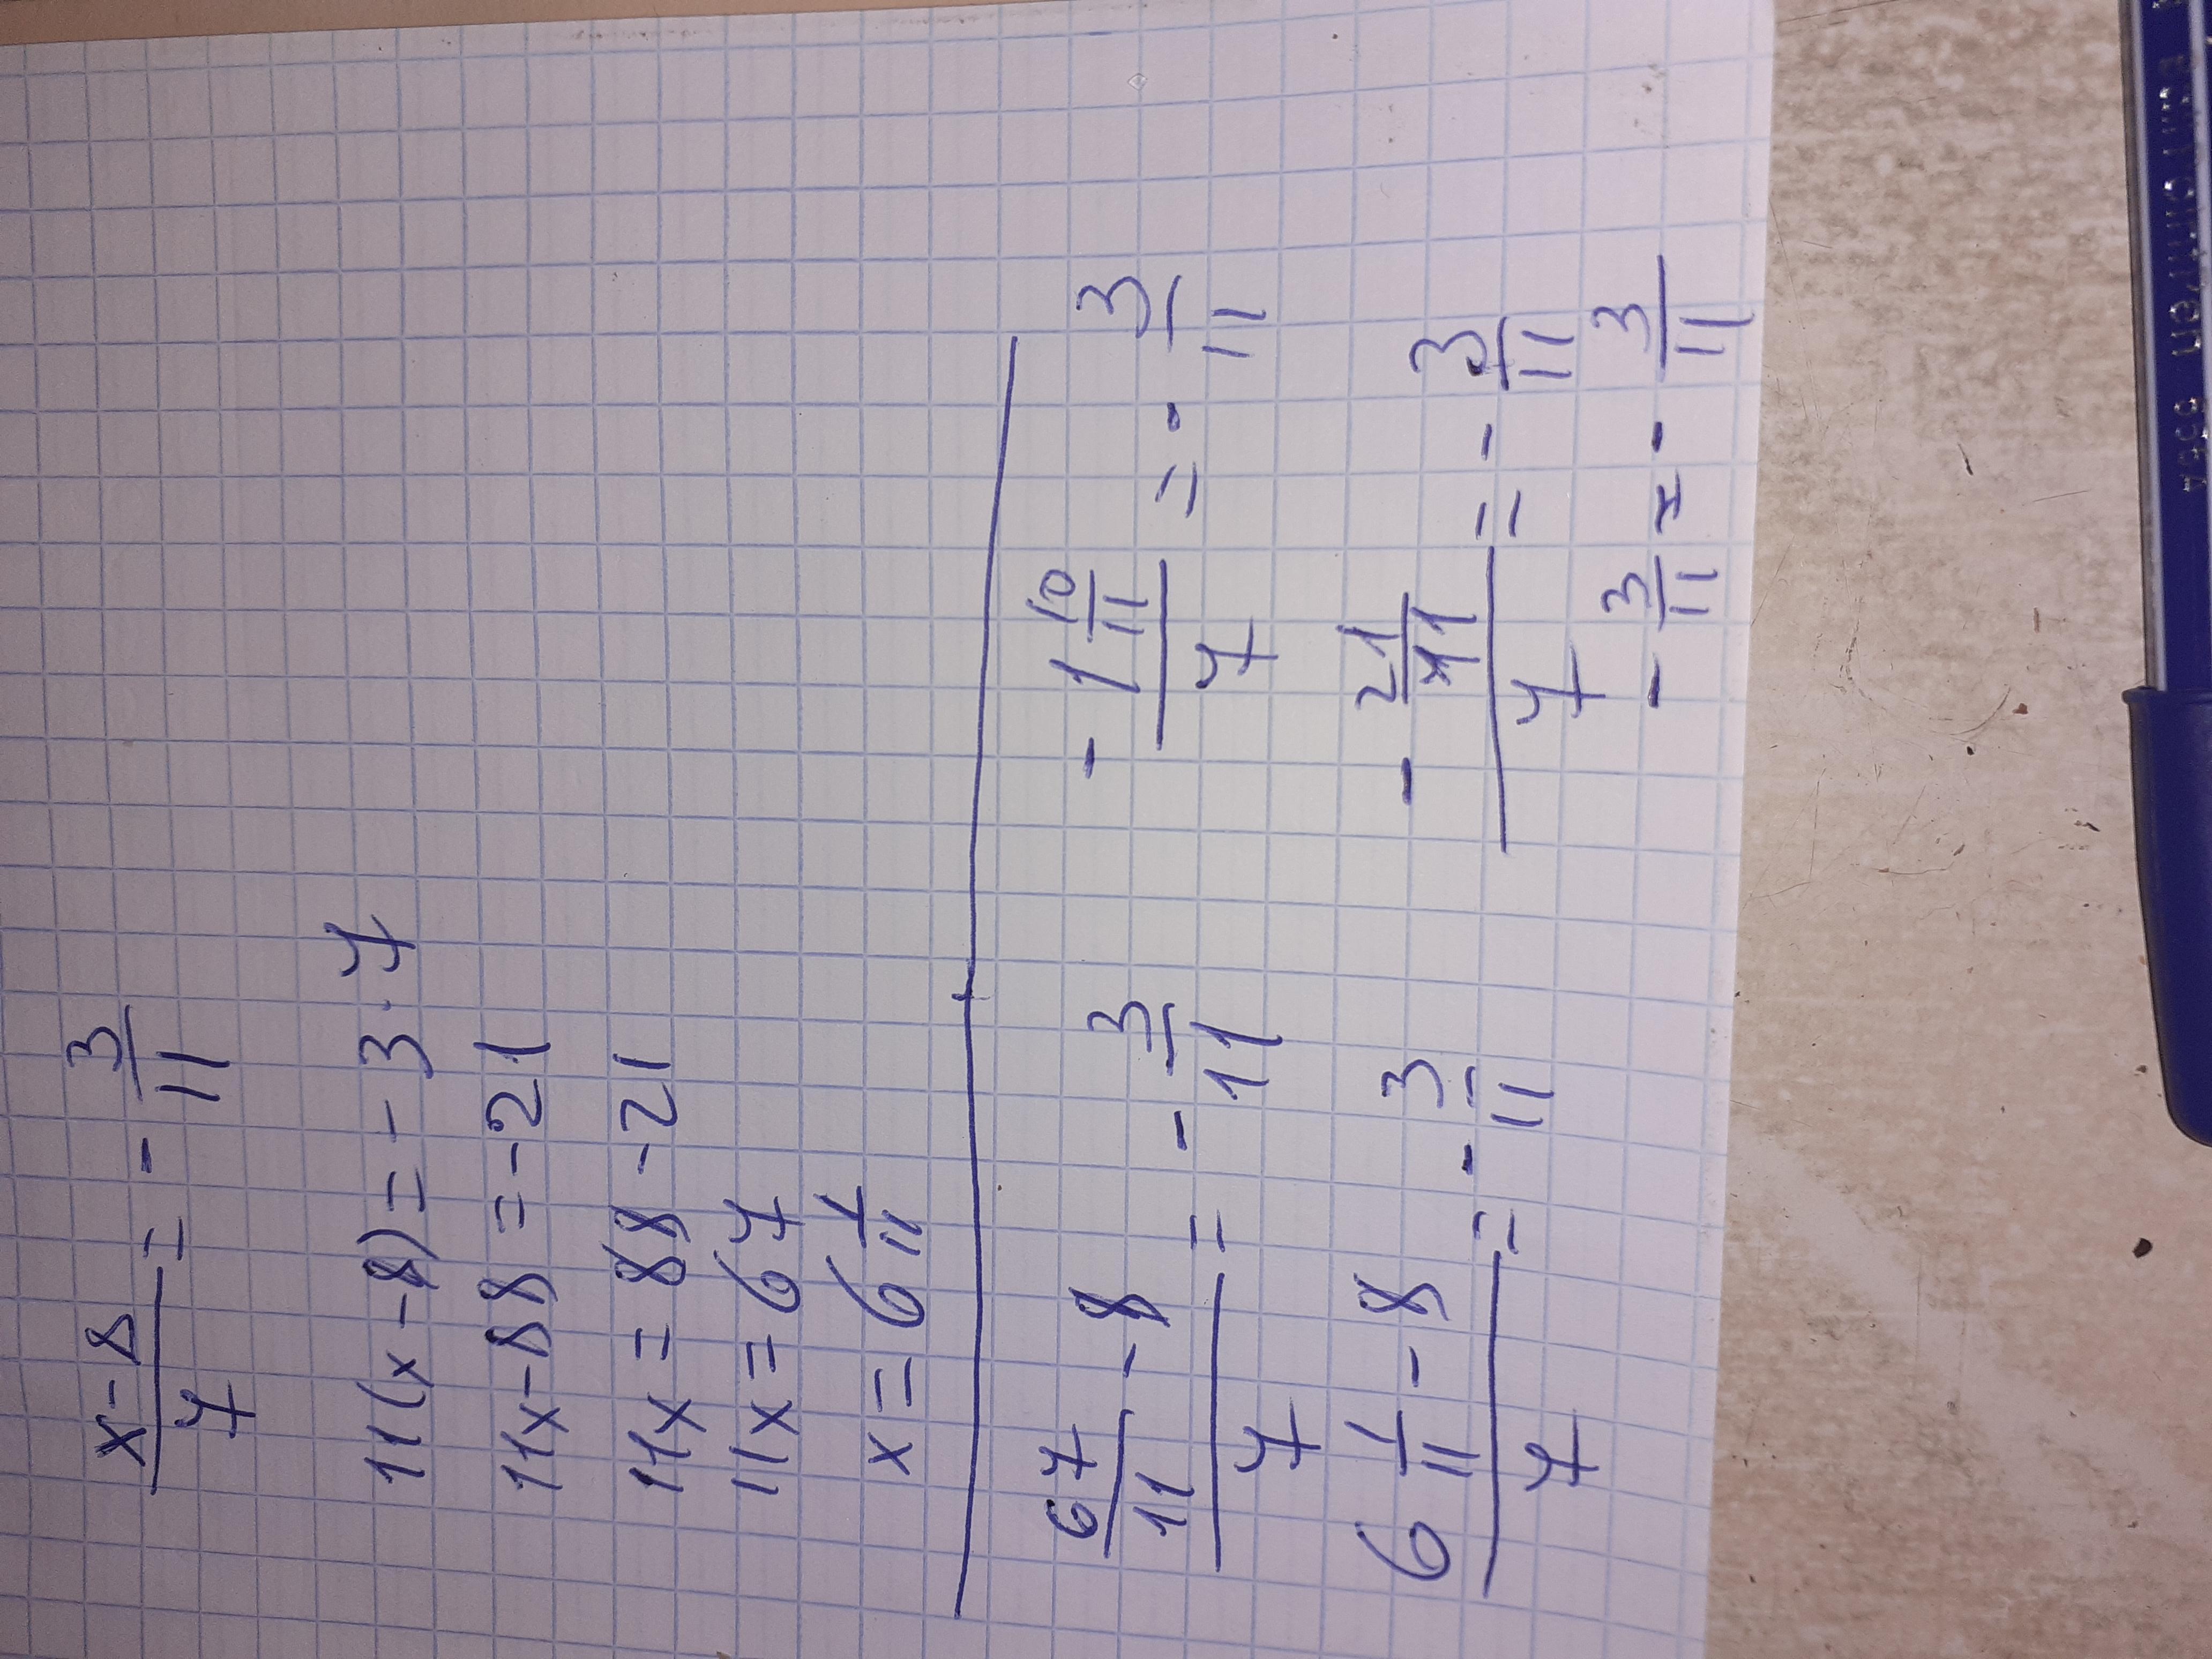 (x-8)/7 = - 3/11
11(x-8) = - 3·7
11x-88 = -21
11x = 88 -21
11x = 67
x = 6 1/11
(67/11 - 8)/7 = - 3/11
(6 1/11 - 8)/7 = - 3/11
(- 1 10/11)/7 = - 3/11
(- 21/11)/7 = - 3/11
- 3/11 = - 3/11